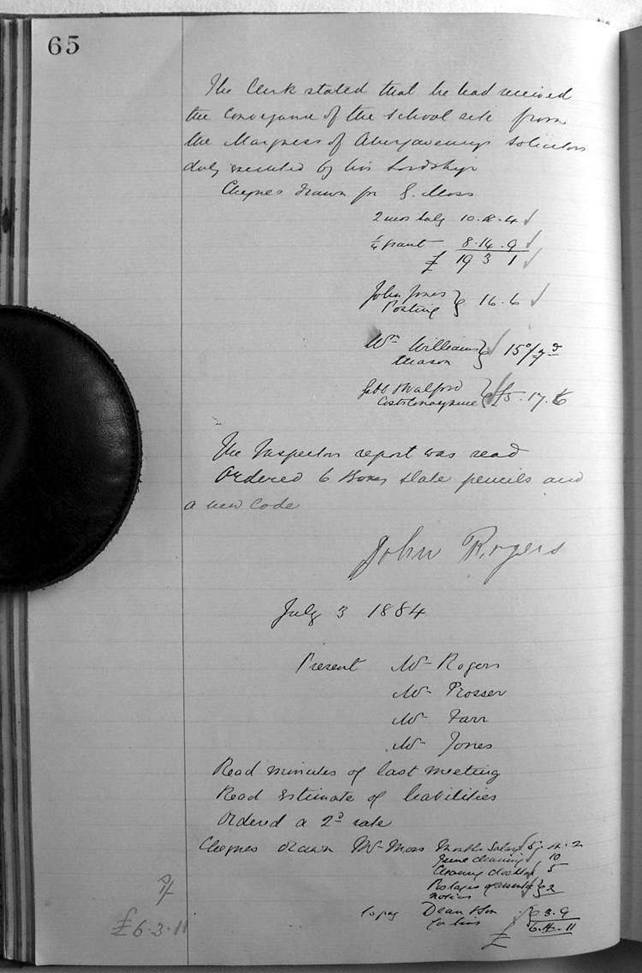 65
The Clerk stated that he had received
the Conveyance of the School site from
the Marquess of Abergavennys Solicitors
duly executed by his Lordship
Cheques drawn for G. Moss
2 mos Saly 10.8.4
¼ grant 8.14.9
£ 19 3 1
John Jones
Posting } 16.6
Wm Williams
Mason }
Walford
Costs Conveyance } £5.17.6
The Inspectors report was read
Ordered 6 Boxes Slate pencils and
a new Code
John Rogers
July 3 1884
Present Mr Rogers
Mr Prosser
Mr Farr
Mr Jones
Read minutes of last meeting
Read Estimate of liabilities
Ordered a 2d rate
Cheques drawn Mr Moss Months Salary 5.4.2
cleaning 10
Cleaning 5
Postages
notices } 2
Dean & Son
£
£6.3.11